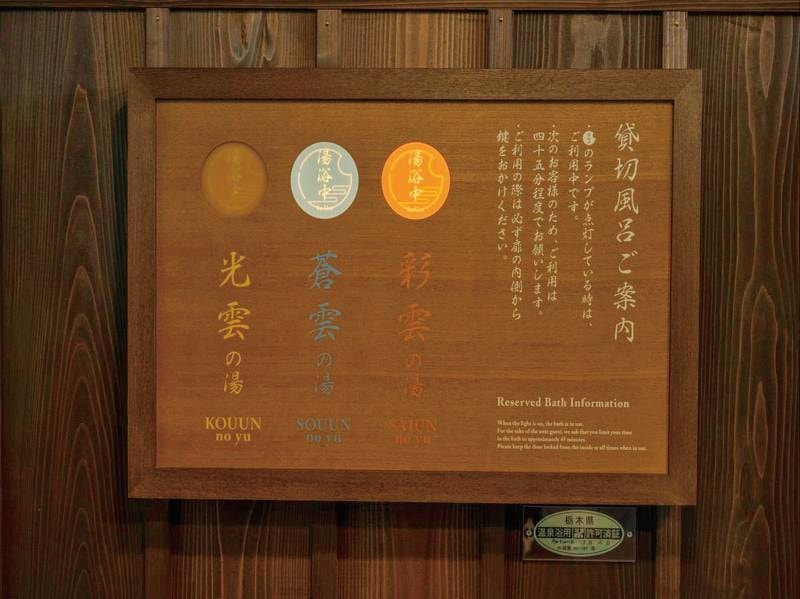 貸切風呂ご案内
・のランプが点灯している時は、
ご利用中です。
・次のお客様のため、ご利用は
四十五分程度でお願いします。
・ご利用の際は必ず扉の内側から
鍵をおかけください。
湯浴中
湯浴中
湯浴中
彩雲の湯
SAIUN
no yu
蒼雲の湯
SOUUN
no yu
光雲の湯
KOUUN
no yu
Reserved Bath Information
When the light is on, the bath is in use.
For the sake of the next guest, we ask that you limit your time
in the bath to approximately 45 minutes.
Please keep the door locked from the inside at all times when in use.
栃木県
温泉浴用 許可済証